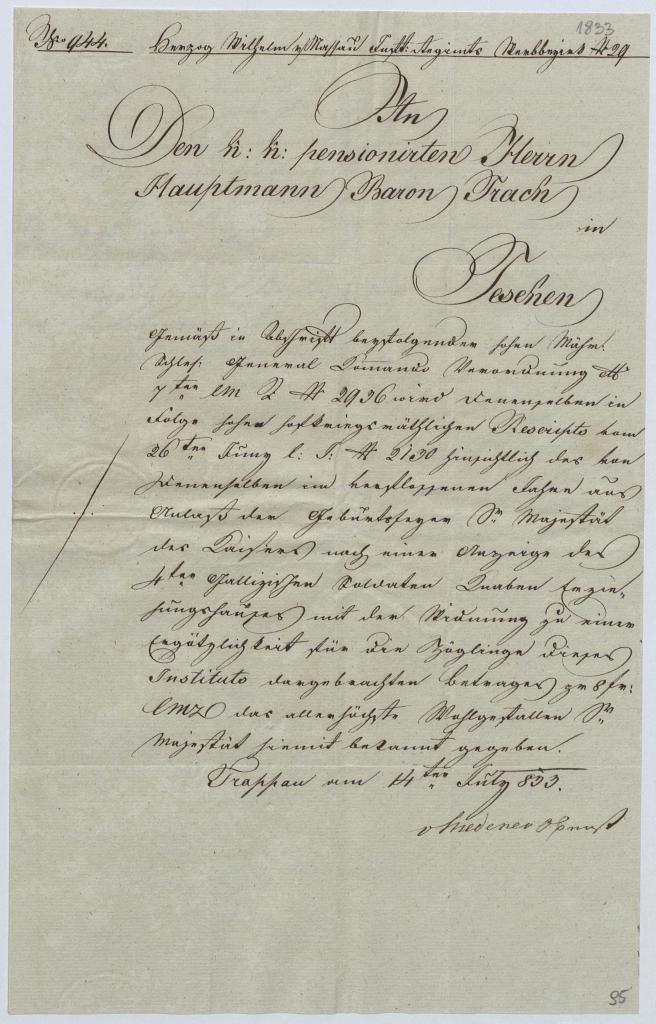 1833
No 944. Herzog Wilhelm v Nassau Inftr: Regimts Werbbezirk No 29
An
Den k: k: pensionirten Herrn
Hauptmann Baron Trach
in
Teschen
Gemäß in Abschrift beyfolgender hohen Mähr:
Schles: General Commando Verordnung
7ten No 2936 wird Denenselben in
Folge hohen hofkriegsräthlichen Rescripts vom
26ten Juny l: J: No 2130 hinsichtlich des von
Denenselben im verflossenen Jahre aus
Anlaß der Geburtsfeyer Sr Majestät
des Kaisers nach einer Anzeige des
4ten Gallizischen Soldaten Knaben Erzie-
hungshauses mit der Widmung zu einer
Ergötzlichkeit für die Zöglinge dieses
Instituts dargebrachten Betrages pr 8 fr:
CMz das allerhöchste Wohlgefallen Sr
Majestät hiemit bekannt gegeben.
Troppau am 14ten July 833.
95